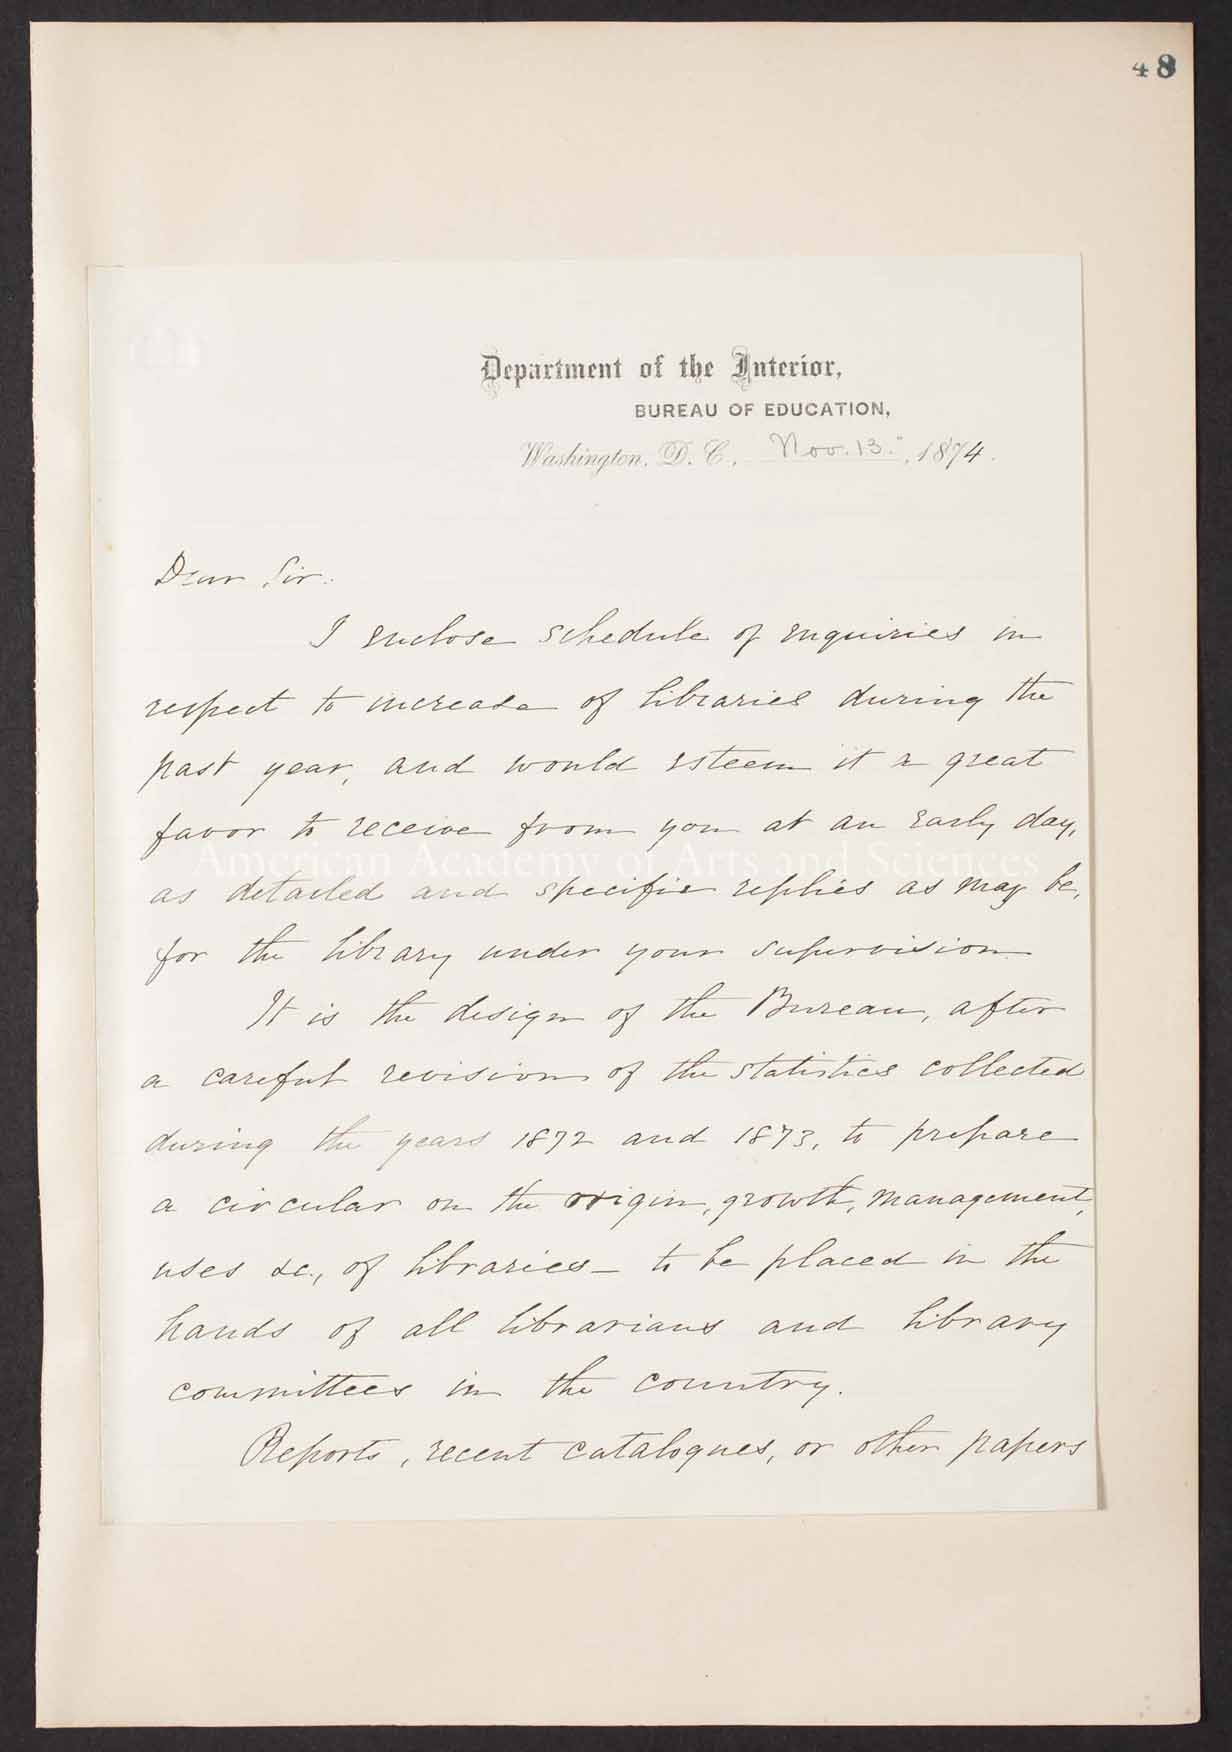 48
Department of the Interior,
BUREAU OF EDUCATION,
Washington, D. C., Nov. 13", 1874.
Dear Sir:
I enclose schedule of inquiries in
respect to increase of libraries during the
past year, and would esteem it a great
favor to receive from you at an early day,
American Academy of Arts and Sciences
as detailed and specific replies as may be,
for the library under your supervision
It is the design of the Bureau, after
a careful revision of the statistics collected
during the years 1872 and 1873, to prepare
a circular on the origin, growth, management,
uses &c., of libraries — to be placed in the
hands of all librarians and library
committees in the country.
Reports, recent catalogues, or other papers